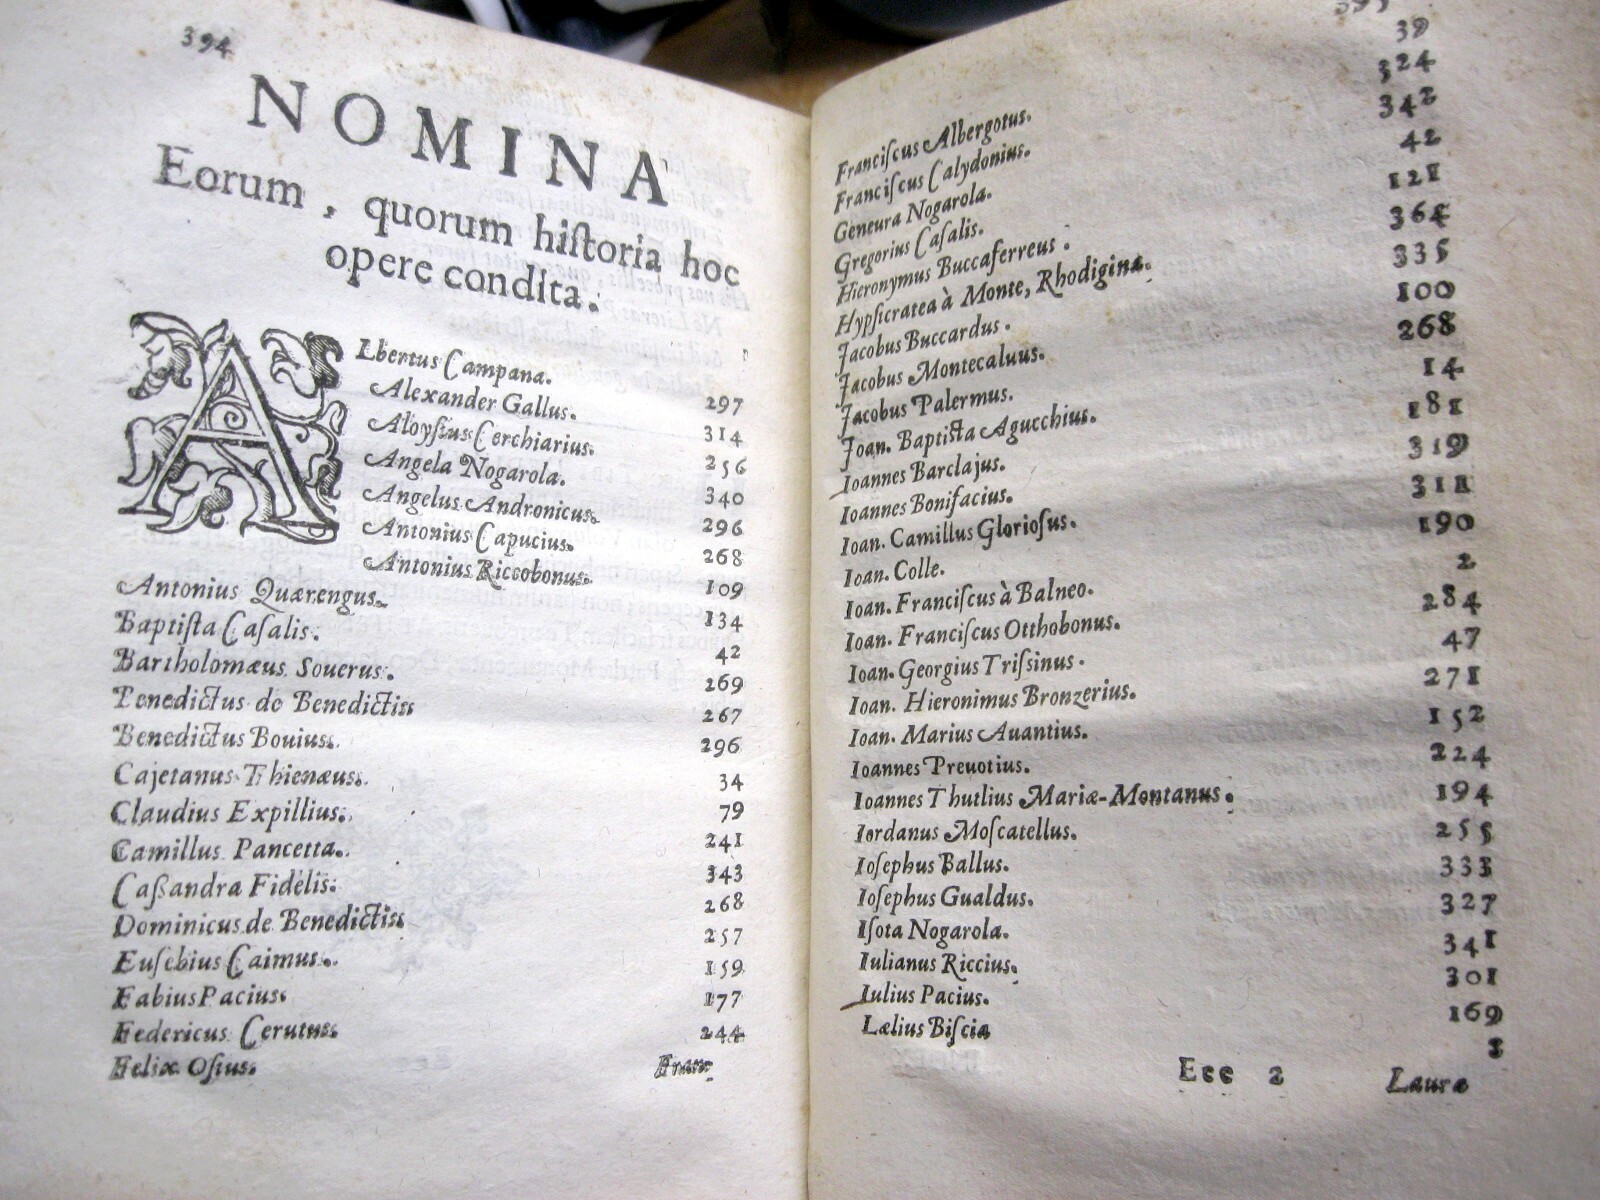 394
NOMINA
Eorum, quorum hiſtoria hoc
opere condita.
ALbertus Campana. 297
Alexander Gallus. 314
Aloyſius Cerchiarius. 256
Angela Nogarola. 340
Angelus Andronicus. 296
Antonius Capucius. 268
Antonius Riccobonus. 109
Antonius Quærengus. 134
Baptiſta Caſalis. 42
Bartholomæus Souerus. 269
Benedictus de Benedictis 267
Benedictus Bouius. 296
Cajetanus Thienæus. 34
Claudius Expillius. 79
Camillus Pancetta. 241
Caßandra Fidelis. 343
Dominicus de Benedictis 268
Euſebius Caimus. 257
Fabius Pacius. 159
Federicus Cerutus. 177
Felix Oſius. 244
Fran-
395
Franciſcus Albergotus. 39
Franciſcus Calydonius. 324
Geneura Nogarola. 342
Gregorius Caſalis. 42
Hieronymus Buccaferreus. 121
Hypſicratea à Monte, Rhodigina. 364
Jacobus Buccardus. 335
Jacobus Montecaluus. 100
Jacobus Palermus. 268
Joan. Baptiſta Agucchius. 14
Ioannes Barclajus. 181
Ioannes Bonifacius. 319
Ioan. Camillus Glorioſus. 311
Ioan. Colle. 190
Ioan. Franciſcus à Balneo. 2
Ioan. Franciſcus Otthobonus. 284
Ioan. Georgius Triſsinus. 47
Ioan. Hieronimus Bronzerius. 271
Ioan. Marius Auantius. 152
Ioannes Preuotius. 224
Ioannes Thuilius Mariæ-Montanus. 194
Iordanus Moſcatellus. 255
Ioſephus Ballus. 333
Ioſephus Gualdus. 327
Iſota Nogarola. 341
Iulianus Riccius. 301
Iulius Pacius. 169
Lælius Biſcia 1
Eee 2 Laura